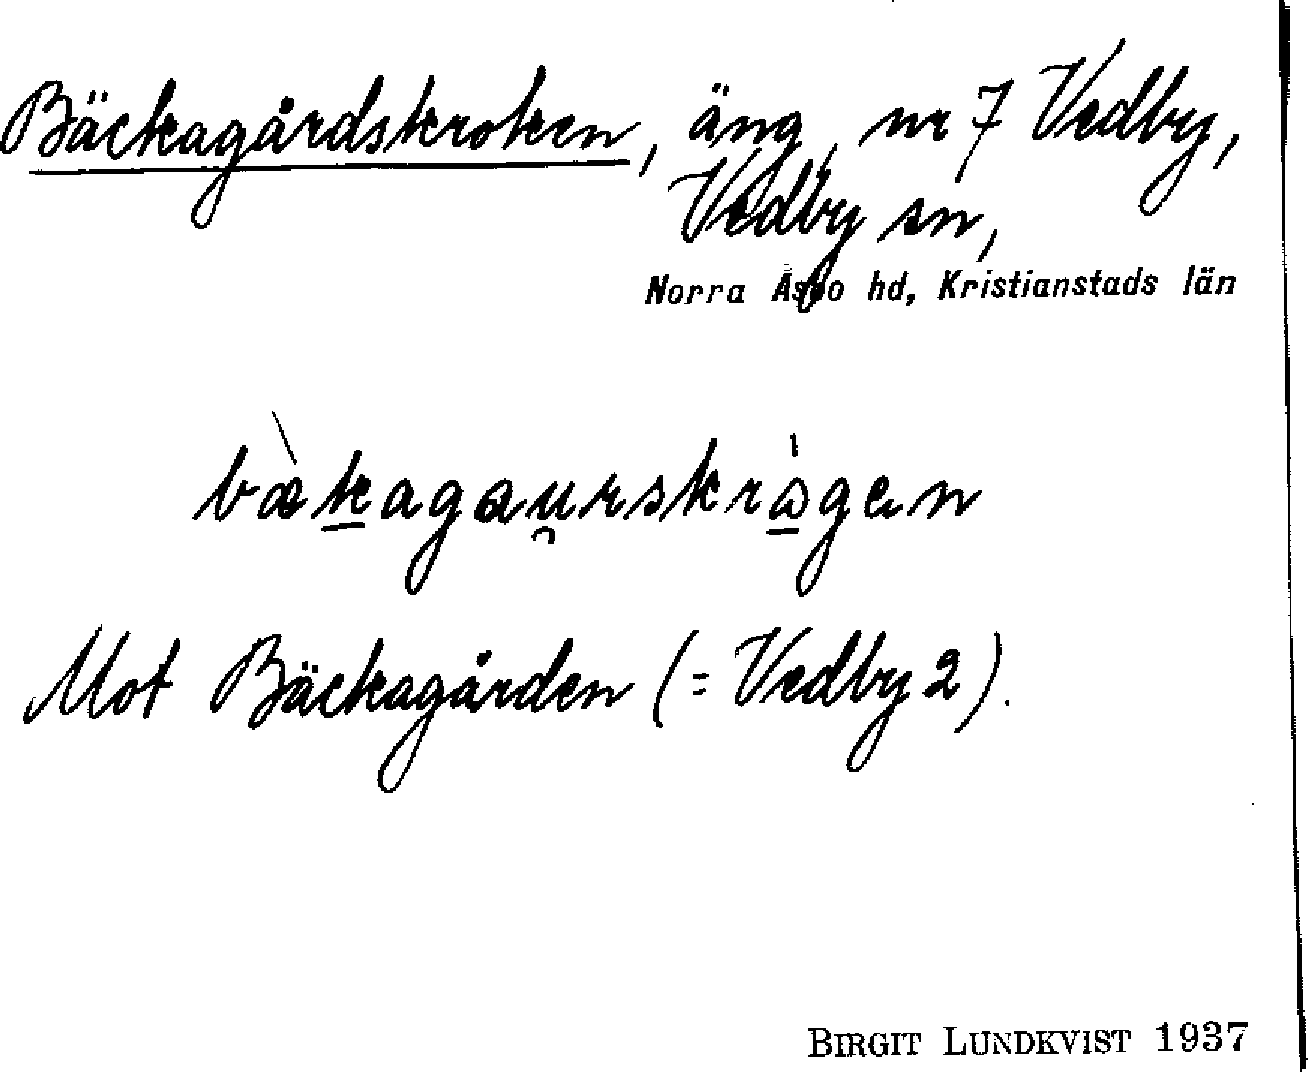 Bäckagårdskroken, äng, nr 7 Vedby,
Vedby sn,
Norra Åsbo hd, Kristianstads län
bàkagau̯rskrɷ̀gen
Mot Bäckagården (= Vedby 2).
BIRGIT LUNDKVIST 1937